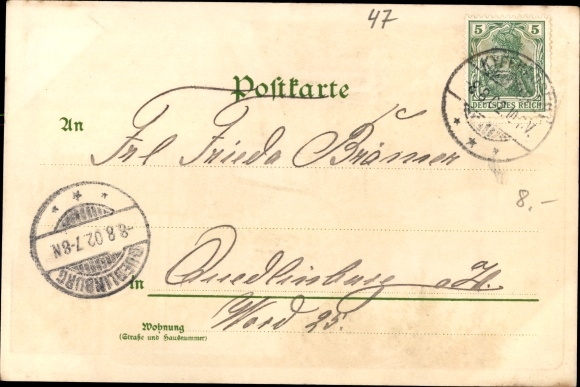 47
5 5
DEUTSCHES REICH
Postkarte
An
Frl Frieda Brämer
8,-
-8.8.02.7-8N
QUEDLINBURG
in Quedlinburg a/H.
Word 25.
Wohnung
(Straße und Hausnummer)